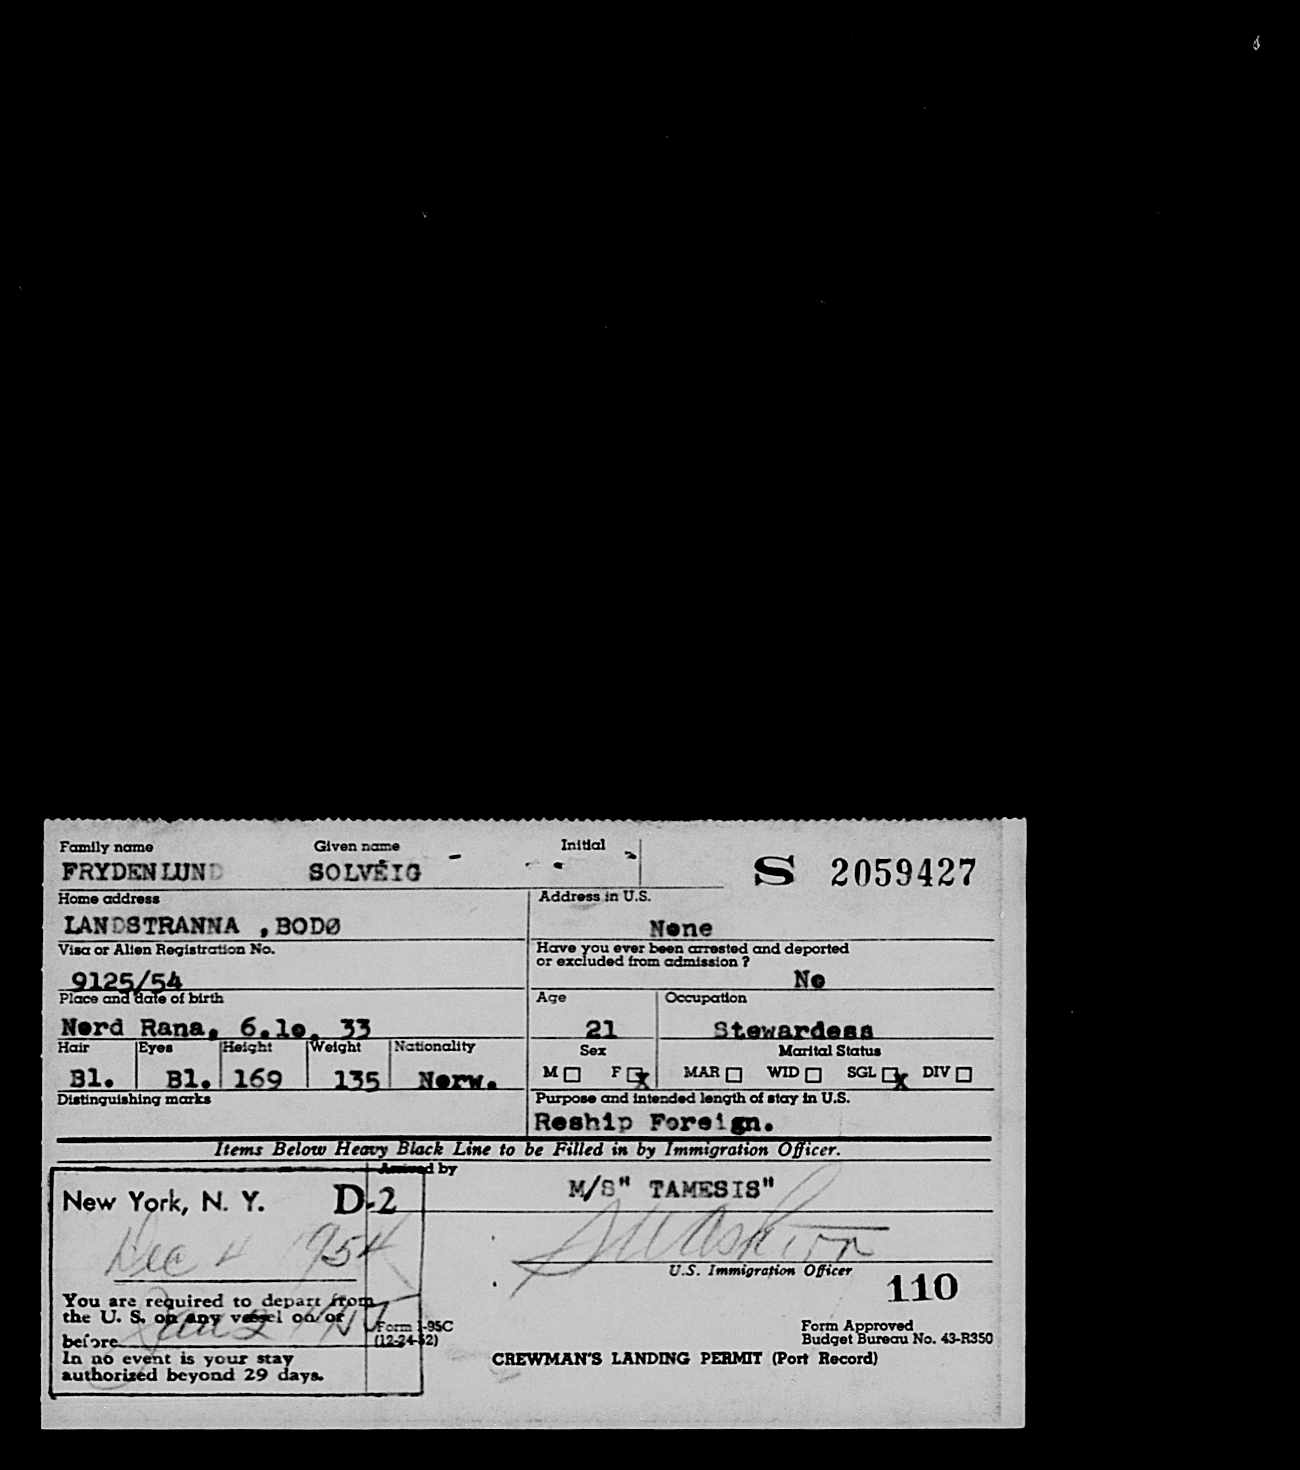 Family name Given name Initial
FRYDENLUND SOLVEIG - - S 2059427
Home address Address in U.S.
LANDSTRANNA ,BODØ None
Visa or Alien Registration No. Have you ever been arrested and deported
or excluded from admission ?
9125/54 No
Place and date of birth Age Occupation
Nord Rana. 6.1o. 33 21 Stewardess
Hair Eyes Height Weight Nationality Sex Marital Status
Bl. Bl. 169 135 Norw. M F X MAR WID SGL X DIV
Distinguishing marks Purpose and intended length of stay in U.S.
Reship Foreign.
Items Below Heavy Black Line to be Filled in by Immigration Officer.
Arrived by
New York, N. Y. D-2 M/S" TAMESIS"
Dec 4 1954
U.S. Immigration Officer 110
You are required to depart from
the U. S. on any vessel on/or
before Jan 2
Form I-95C
(12-24-52)
Form Approved
Budget Bureau No. 43-R350
In no event is your stay
authorized beyond 29 days.
CREWMAN'S LANDING PERMIT (Port Record)